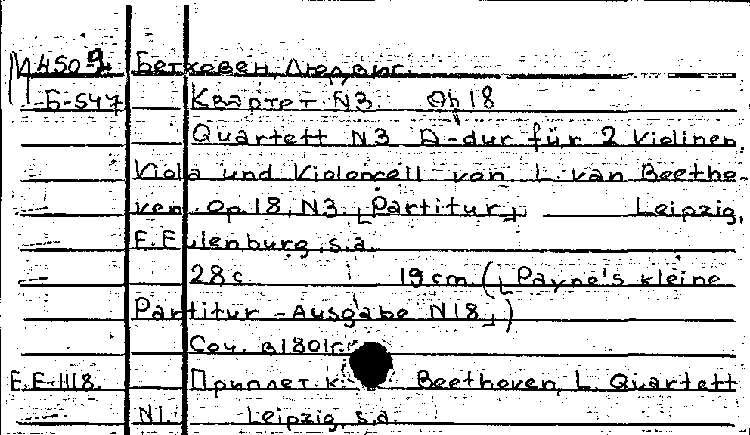 М 4509 Бетховен, Людвиг.
Б-547 Квартет N3. Op 18
Quartett N3 D-dur für 2 Violinen,
Viola und Violoncell von L. van Beetho-
ven. Op. 18, N3. [Partitur] Leipzig,
E. Eulenburg, s.a.
28 с. 19 cm. ([Payne's kleine
Partitur-Ausgabe N18])
Соч. в 1801 г.
E.E-1118. Приплет к Beethoven, L. Quartett
N1. Leipzig, s.a.